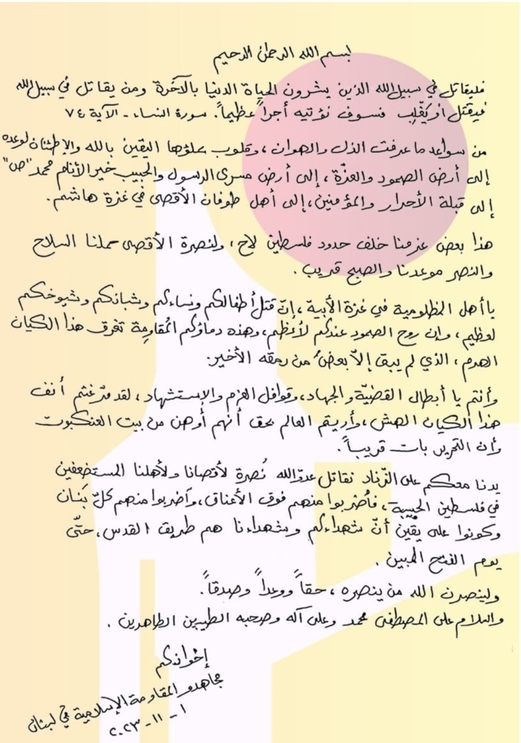 بسم الله الرحمن الرحيم
فليقاتل في سبيل الله الذين يشرون الحياة الدنيا بالآخرة ومن يقاتل في سبيل الله
فيقتل او يَغلِب فسوف نؤتيه أجراً عظيماً. سورة النساء - الآية ٧٤
من سواعد ما عرفت الذل والهوان، وقلوب يملؤها اليقين بالله والإطمئنان لوعده
إلى أرض الصمود والعزّة، إلى أرض مسرى الرسول والحبيب خير الأنام محمد "ص"
إلى قبلة الأحرار والمؤمنين، إلى أهل طوفان الأقصى في غزة هاشم.
هذا بعض عزمنا خلف حدود فلسطين لاح، ولنصرة الأقصى حملنا السلاح
والنصر موعدنا والصبح قريب.
يا أهل المظلومية في غزة الأبية، إنّ قتل أطفالكم ونساءكم وشبانكم وشيوخكم
لعظيم، وإن روح الصمود عندكم لأعظم، وهذه دماؤكم المُقاوِمة تغرق هذا الكيان
الهرم، الذي لم يبق إلا بعضُ من رمقه الأخير.
وأنتم يا أبطال القضيّة والجهاد، وقوافل العزم والإستشهاد، لقد مرّغتم أنف
هذا الكيان الهش، وأريتم العالم بحق أنهم أوهن من بيت العنكبوت
وأن التحرير بات قريباً.
يدنا معكم على الزّناد نقاتل عدوّ الله نُصرة لأقصانا ولأهلنا المستضعفين
في فلسطين الحبيبة، فاضربوا منهم فوق الأعناق، واضربوا منهم كلّ بَنان
وكونوا على يقين أنّ شهداءكم وشهداءنا هم طريق القدس، حتّى
يوم الفتح المبين.
ولينصرن الله من ينصره، حقاً ووعداً وصدقاً.
والسلام على المصطفى محمد وعلى آله وصحبه الطيبين الطاهرين.
إخوانكم
مجاهدو المقاومة الإسلامية في لبنان
١ - ١١ - ٢٠٢٣